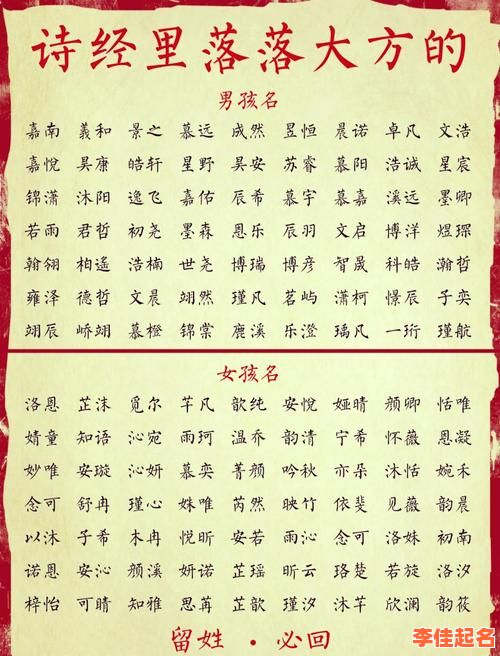 诗经里落落大方的
男孩名
嘉南 義和 景之 慕远 成然 昱恒 晨诺 卓凡 文浩
嘉悦 吴康 皓轩 星野 吴安 苏睿 慕阳 浩诚 星宸
锦潇 沐阳 逸飞 嘉佑 辰希 慕宇 慕嘉 溪远 墨卿
若雨 君哲 初尧 墨森 恩乐 辰羽 文启 博洋 煜琛
翰翎 柏遙 浩楠 世尧 博瑞 博彦 智晟 科皓 瀚哲
雍泽 德哲 文晨 翊然 瑾凡 茗屿 潇柯 憬辰 子奕
翊辰 峤翊 慕橙 锦棠 鹿溪 乐澄 瑀凡 一珩 瑾航
女孩名
洛恩 芷沫 觅尔 芊凡 歆纯 安悦 娅晴 颜卿 恬唯
婧童 知语 沁宛 雨珂 温乔 韵清 宁希 怀薇 恩凝
妙唯 安璇 沁妍 慕奕 菁颜 吟秋 亦朵 沐恬 婉禾
念可 舒冉 瑾心 姝唯 芮然 映竹 依斐 见薇 韵晨
以沐 子希 木冉 悦昕 安若 雨沁 念可 洛姝 初南
诺恩 安沁 颜溪 妍诺 芷瑶 昕云 珞楚 若旋 洛汐
梓怡 可晴 知雅 思苒 芷歆 瑾汐 沐芊 欣澜 韵筱
留姓 · 必回
李佳起名